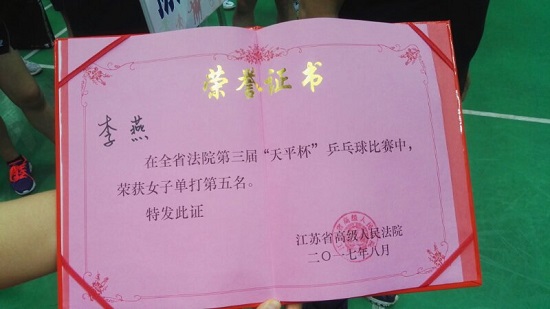 荣誉证书
李燕
在全省法院第三届“天平杯”乒乓球比赛中，
荣获女子单打第五名。
特发此证
江苏省高级人民法院
二〇一七年八月